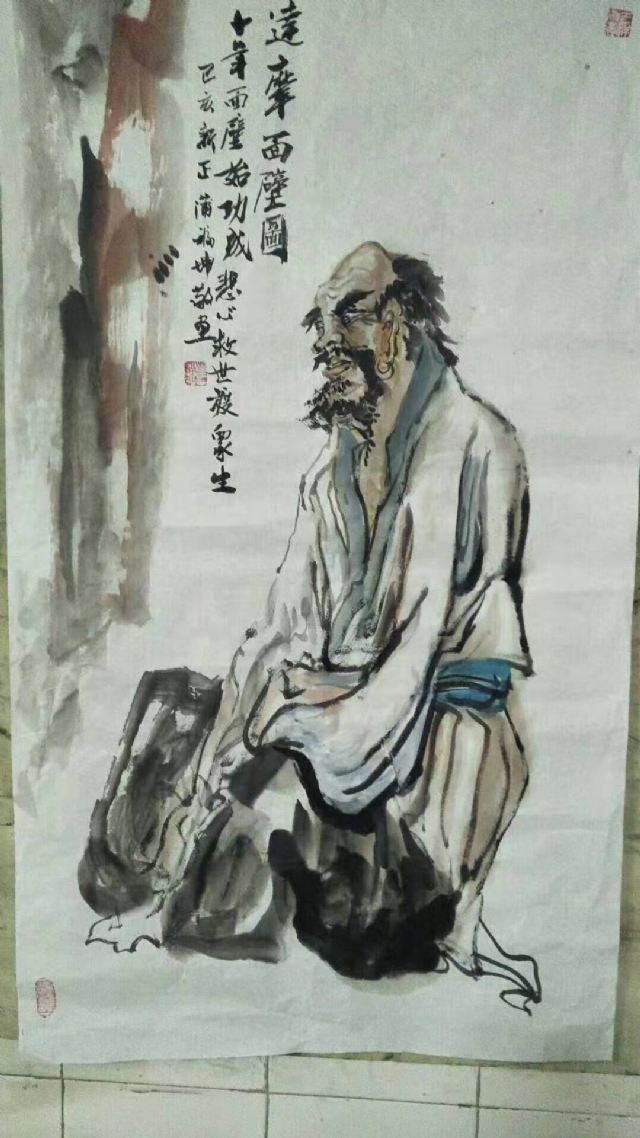 達摩面壁圖
十年面壁始功成悲心救世護衆生
己亥新正蒲坤敬画